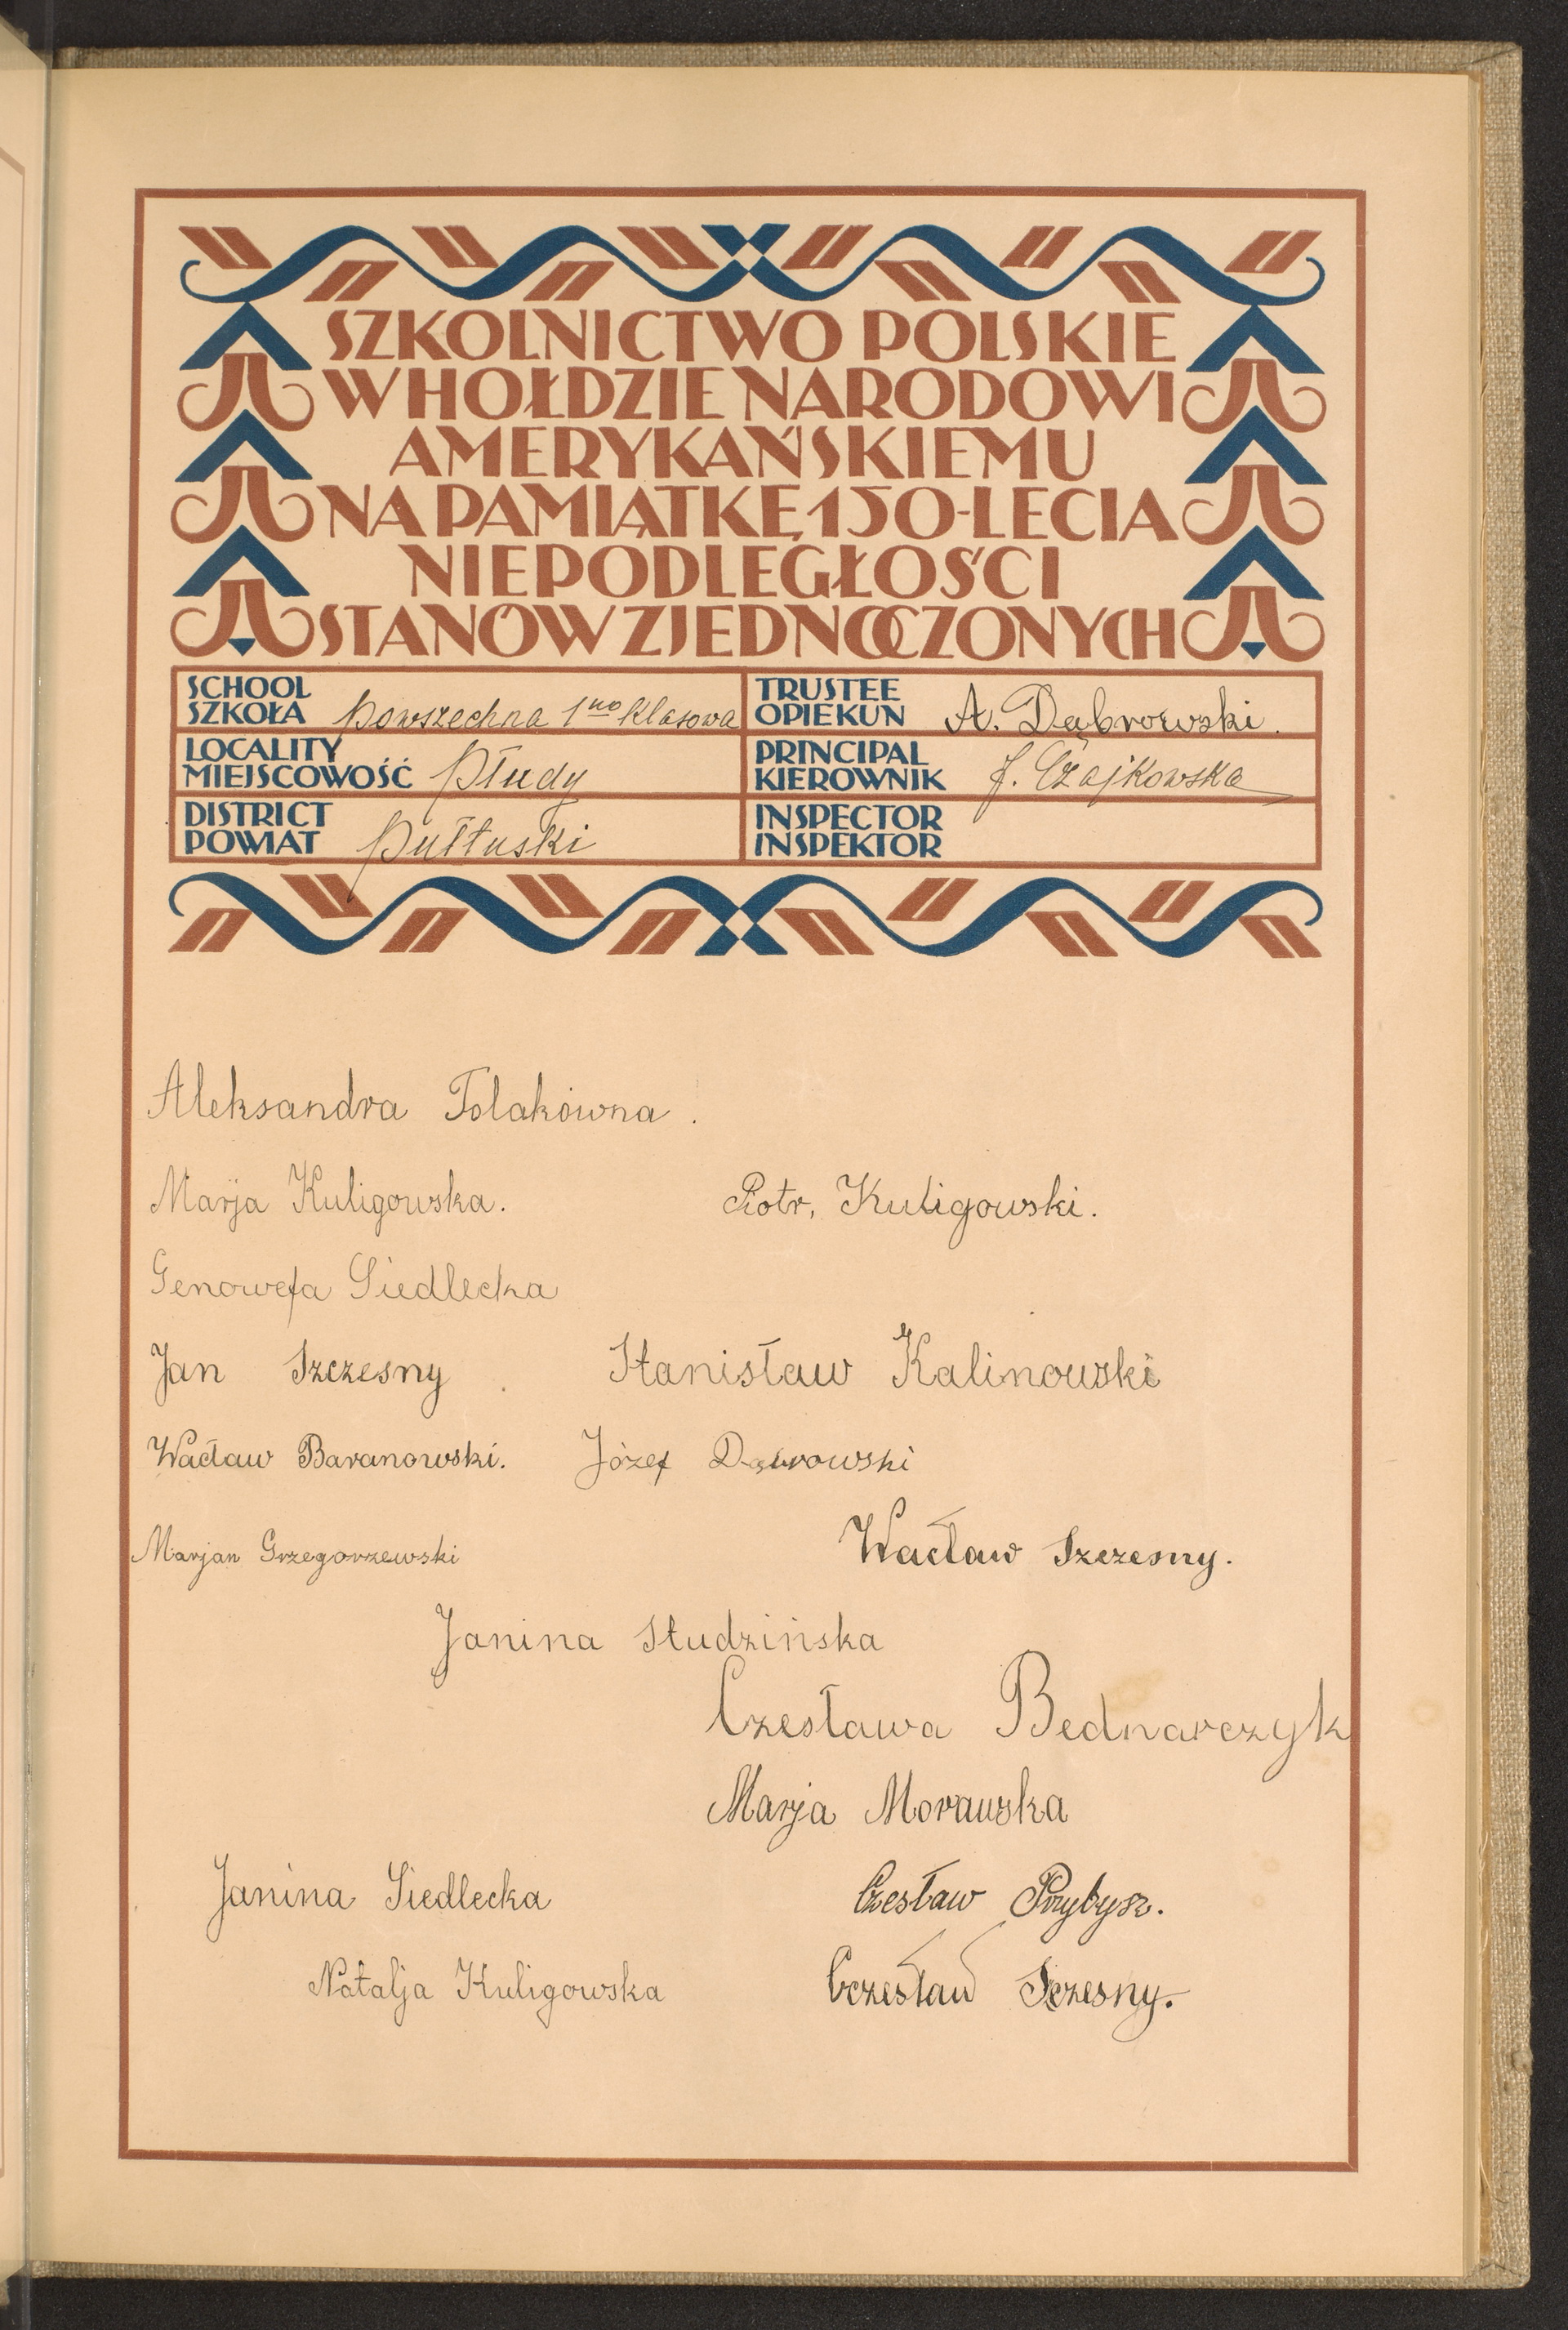 SZKOLNICTWO POLSKIE
W HOŁDZIE NARODOWI
AMERYKAŃSKIEMU
NA PAMIĄTKĘ 150-LECIA
NIEPODLEGŁOŚCI
STANÓW ZJEDNOCZONYCH
SCHOOL
SZKOŁA powszechna 1no klasowa
TRUSTEE
OPIEKUN A. Dąbrowski.
LOCALITY
MIEJSCOWOŚĆ Płudy
PRINCIPAL
KIEROWNIK J. Czajkowska
DISTRICT
POWIAT Pułtuski
INSPECTOR
INSPEKTOR
Aleksandra Polakówna.
Marja Kuligowska. Piotr, Kuligowski.
Genowefa Siedlecka
Jan Szczesny Stanisław Kalinowski
Wacław Baranowski. Józef Dąbrowski
Marjan Grzegorzewski Wacław Szczesny.
Janina Studzińska
Czesława Bednarczyk
Marja Morawska
Janina Siedlecka Czesław Przybysz.
Natalja Kuligowska Czesław Sczesny.